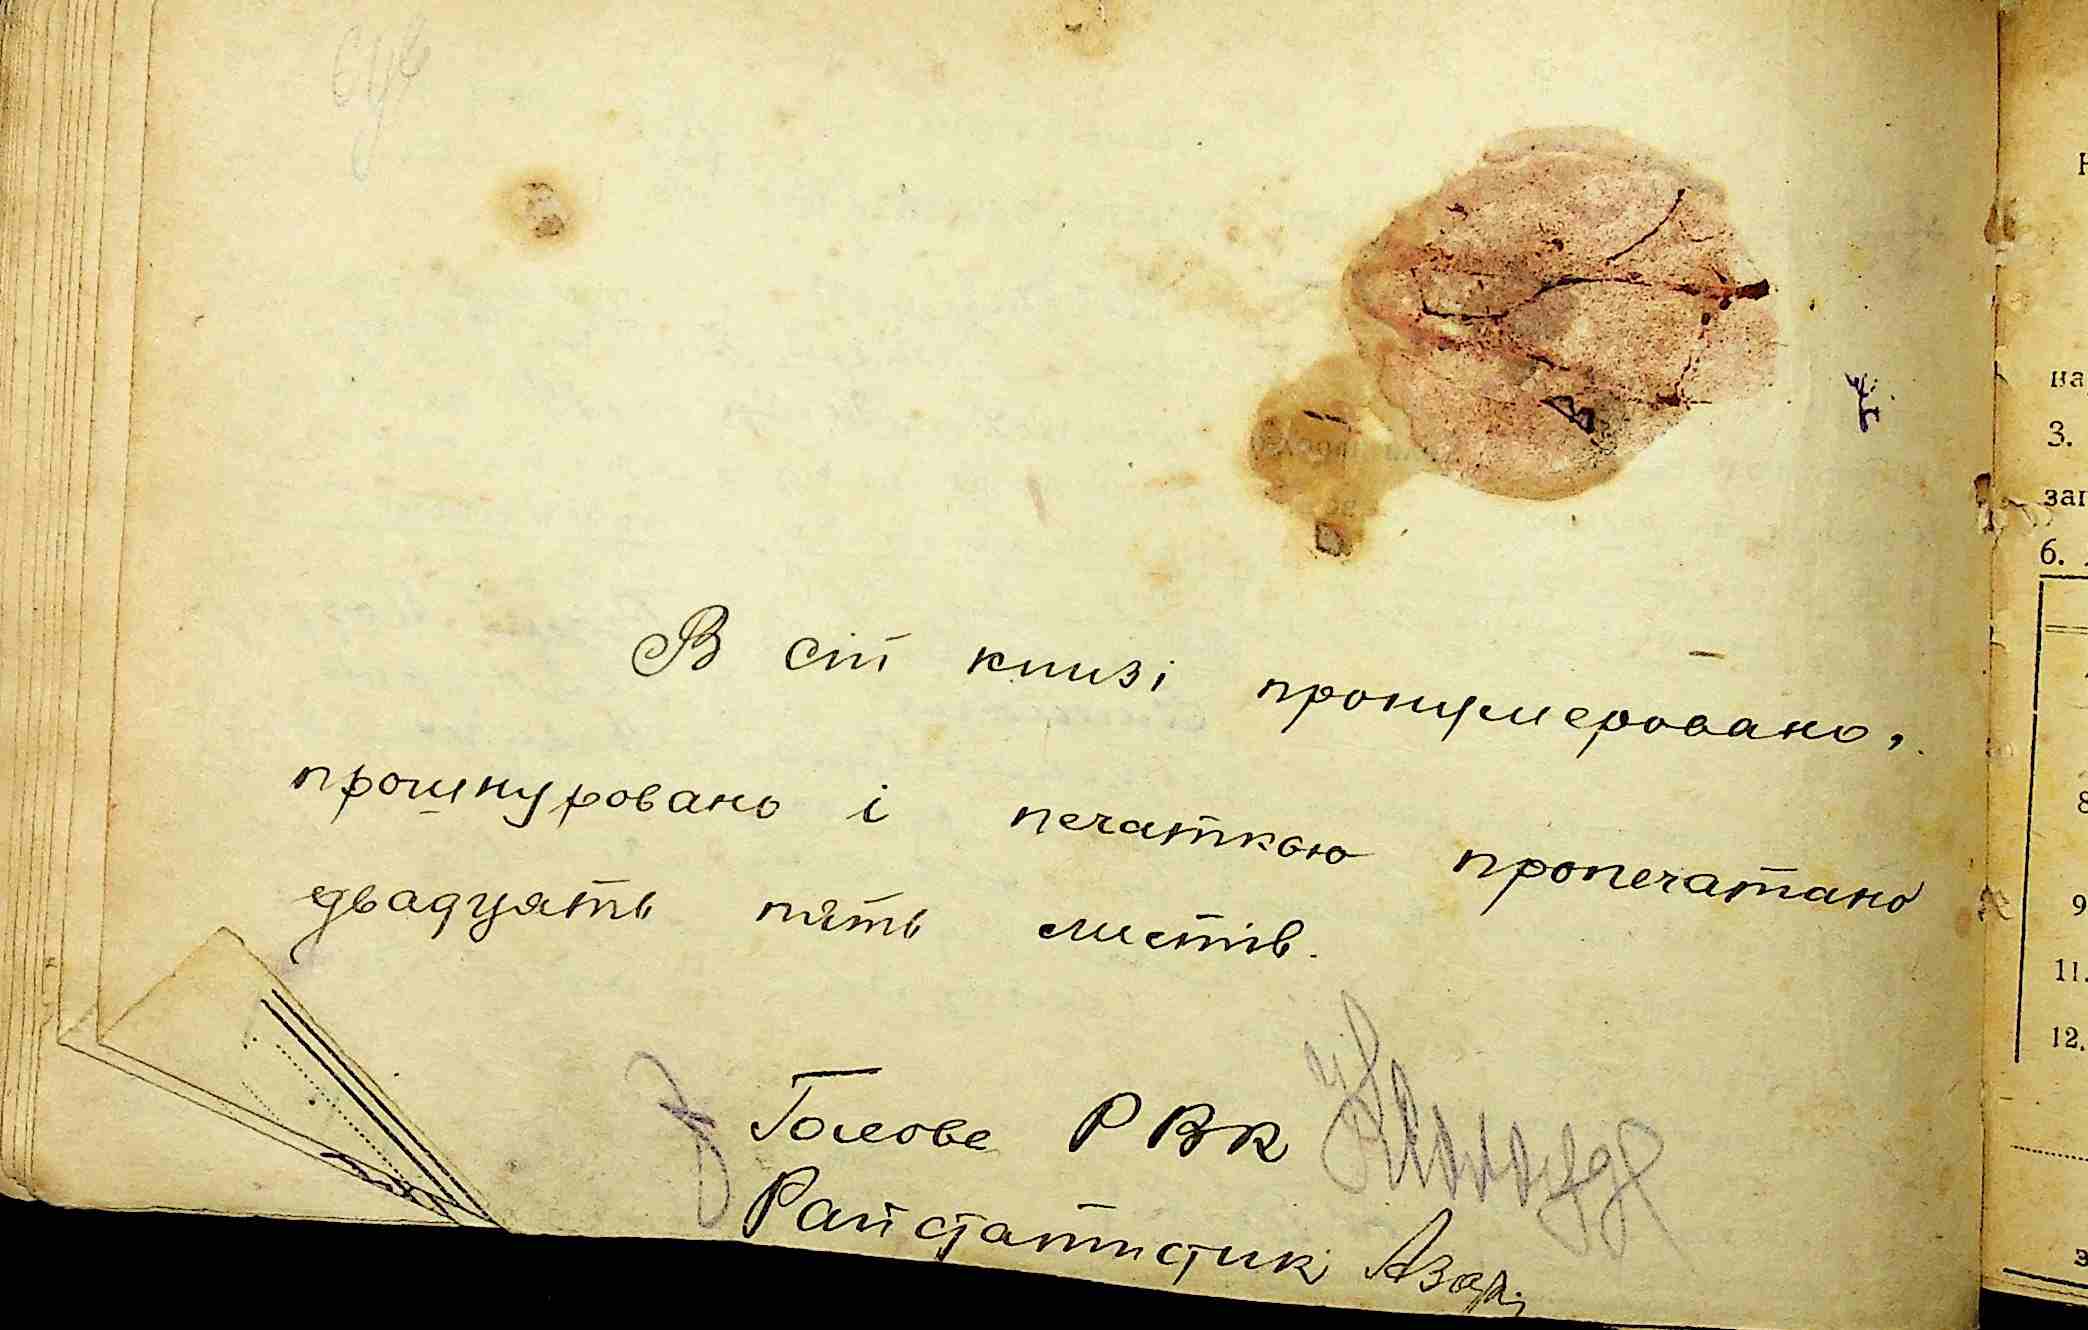 В сій книзі пронумеровано,
прошнуровано і печаткою пропечатано
двадцять пять листів.
Голова РВК
Райстатистик
на
3.
6.
8
9
11.
12.